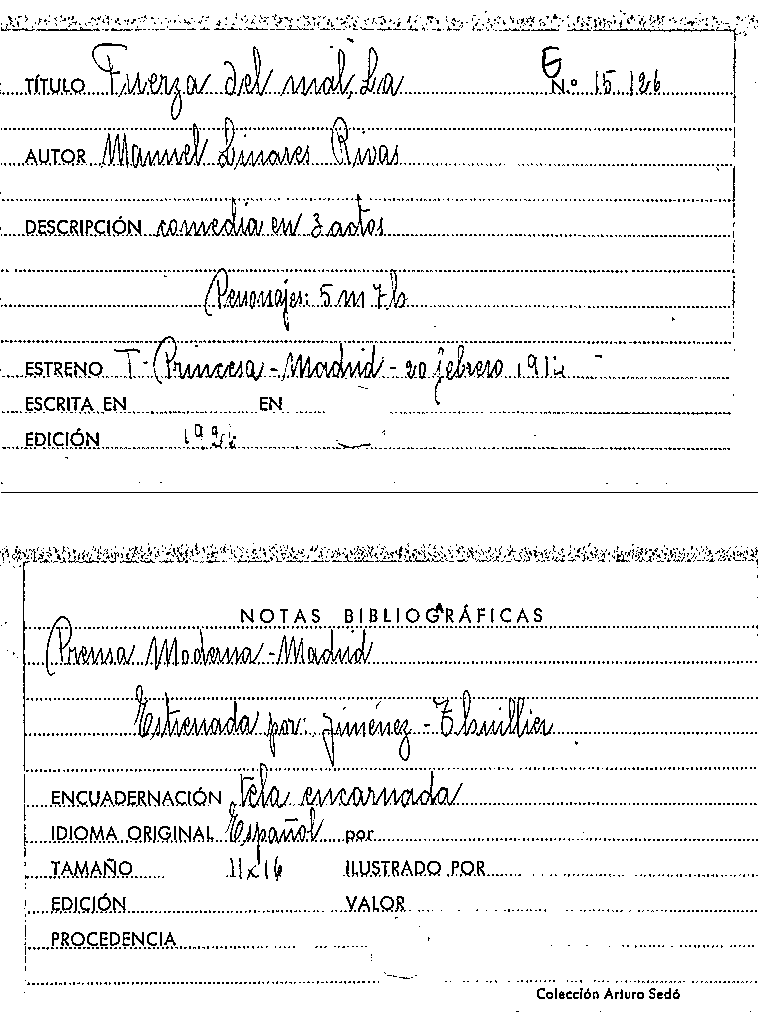 TÍTULO Fuerza del mal, La Nº 15.126
AUTOR Manuel Linares Rivas
DESCRIPCIÓN comedia en 3 actos
Personajes: 5 m 7 h
ESTRENO T- Princesa - Madrid - 20 febrero
ESCRITA EN EN
EDICIÓN
NOTAS BIBLIOGRÁFICAS
Prensa Moderna - Madrid
Estrenada por: Jiménez - Thuillier
ENCUADERNACIÓN tela encarnada
IDIOMA ORIGINAL Español por
TAMAÑO 11x16 ILUSTRADO POR
EDICIÓN VALOR
PROCEDENCIA
Colección Arturo Sedó